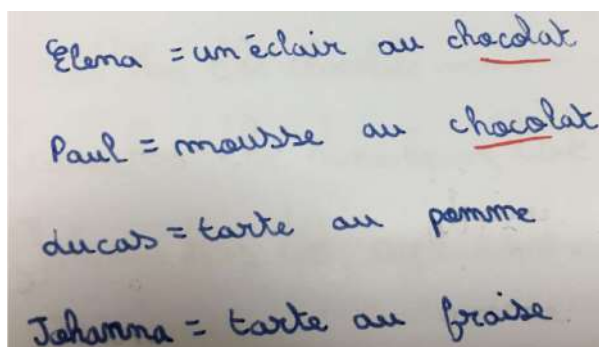 Elena = un éclair au chocolat
Paul = mousse au chocolat
Lucas = tarte au pomme
Johanna = tarte au fraise